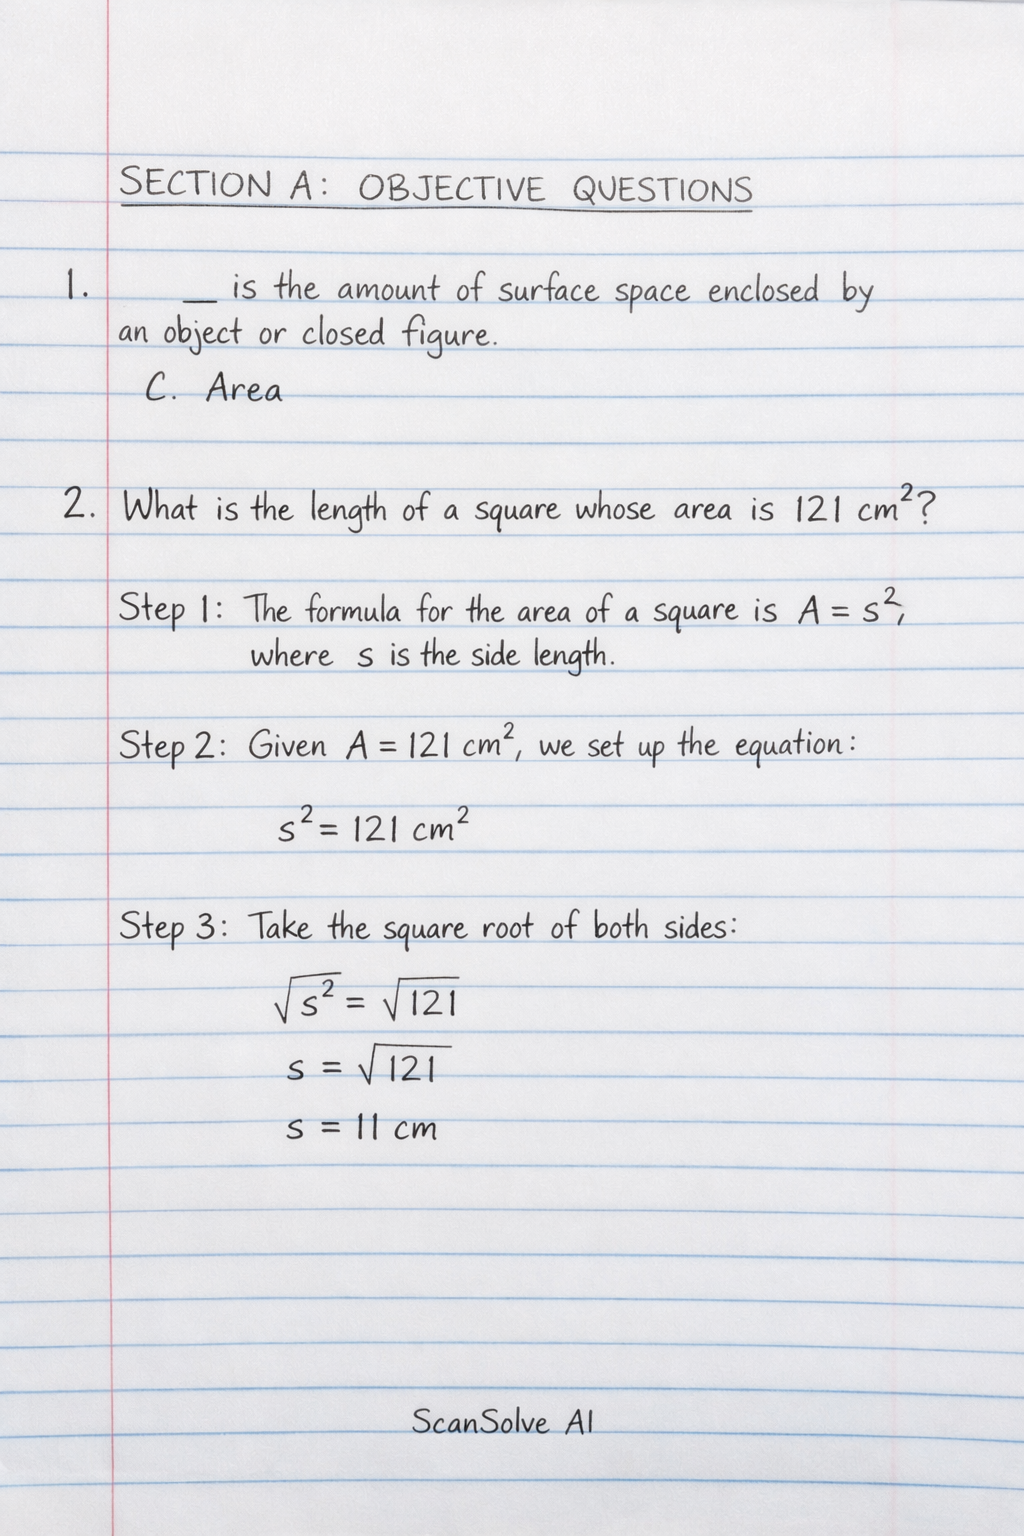 SECTION A: OBJECTIVE QUESTIONS
1. __ is the amount of surface space enclosed by
an object or closed figure.
C. Area
2. What is the length of a square whose area is 121 cm²?
Step 1: The formula for the area of a square is A = s²,
where s is the side length.
Step 2: Given A = 121 cm², we set up the equation:
s² = 121 cm²
Step 3: Take the square root of both sides:
√s² = √121
s = √121
s = 11 cm
ScanSolve AI